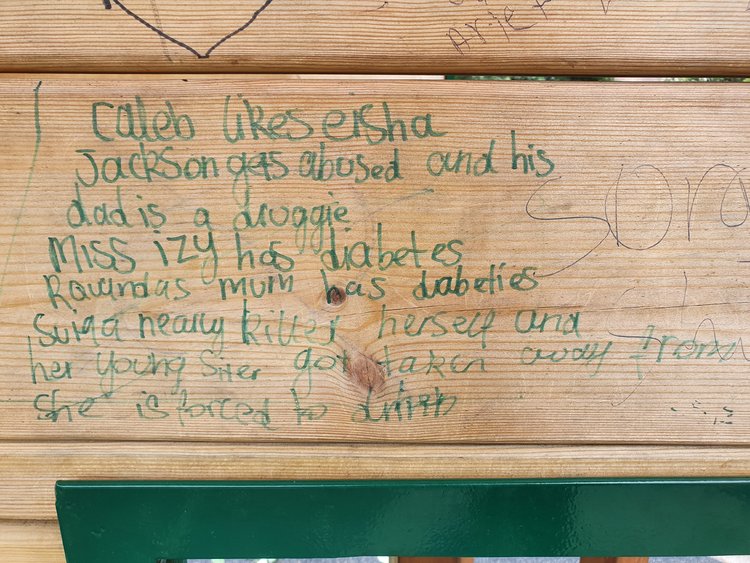 Caleb likes eisha
Jackson gets abused and his
dad is a druggie
Miss izy has diabetes
mum has diabeties
nearly killer herself and
her young Siter got taken away from
She is forced to